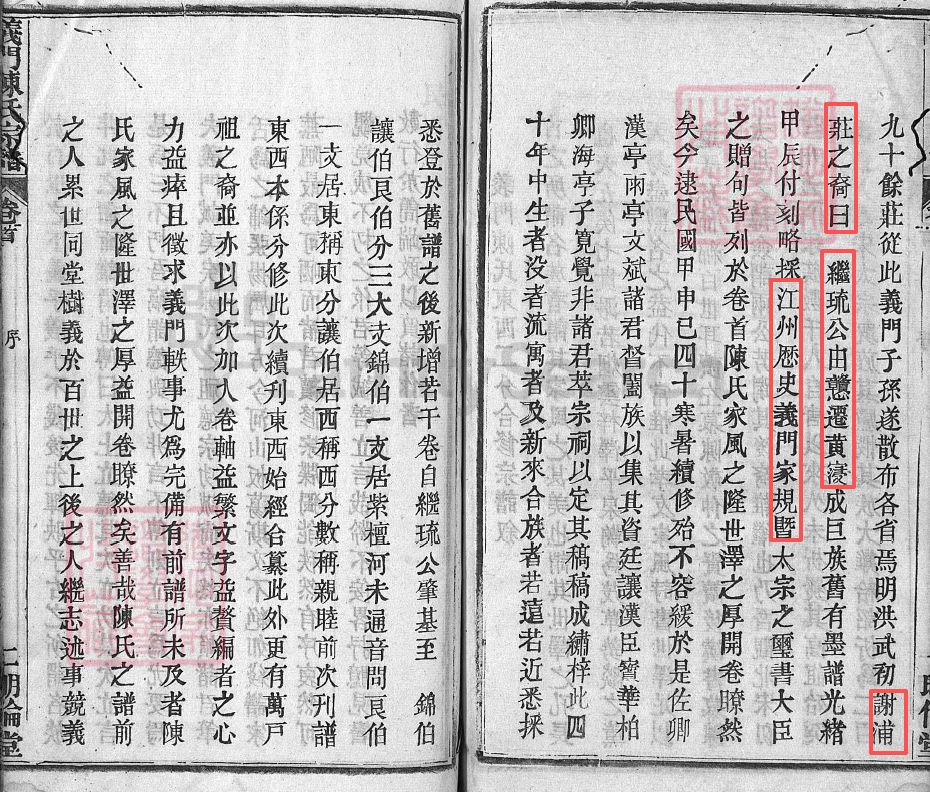 九十餘莊從此義門子孫遂散布各省焉明洪武初謝浦
莊之裔曰 繼琉公由戁遷黃濅成巨族舊有墨譜光緒
甲辰付刻略採江州歷史義門家規暨太宗之璽書大臣
之贈句皆列於卷首陳氏家風之隆世澤之厚開卷瞭然
矣今逮民國甲申已四十寒暑續修殆不容緩於是佐卿
漢亭雨亭文斌諸君督闔族以集其資廷讓漢臣寶華柏
卿海亭子寬覺非諸君萃宗祠以定其稿稿成繡梓此四
十年中生者没者流寓者及新來合族者若遠若近悉採
悉登於舊譜之後新增若干卷自繼琉公肇基至 錦伯
讓伯良伯分三大支錦伯一支居紫檀河未通音問良伯
一支居東稱東分讓伯居西稱西分數稱親睦前次刊譜
東西本係分修此次續刊東西始經合纂此外更有萬戸
祖之裔並亦以此次加入卷軸益繁文字益贅編者之心
力益瘁且徵求義門軼事尤爲完備有前譜所未及者陳
氏家風之隆世澤之厚益開卷瞭然矣善哉陳氏之譜前
之人累世同堂樹義於百世之上後之人繼志述事競義
義門陳氏宗譜 卷首 序 二 明倫堂